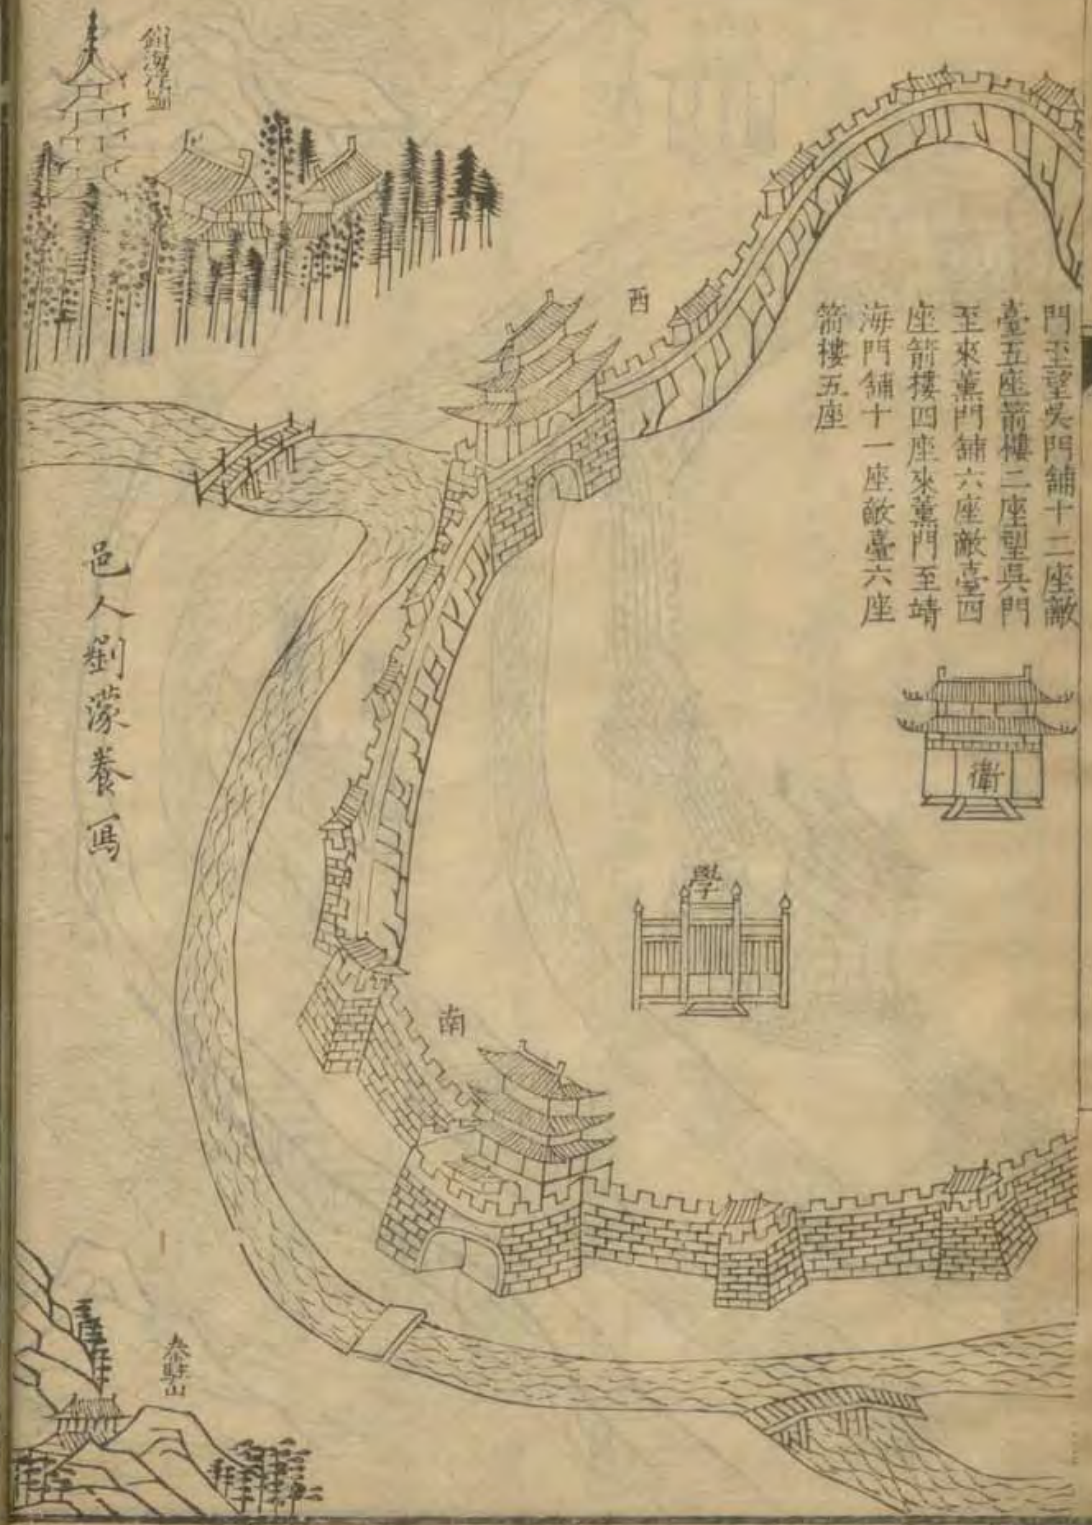 門至望吳門舖十二座敵
臺五座箭樓二座望吳門
至來薰門舖六座敵臺四
座箭樓四座來薰門至靖
海門舖十一座敵臺六座
箭樓五座
西
衛
學
南
邑人劉濛養寫
秦駐山